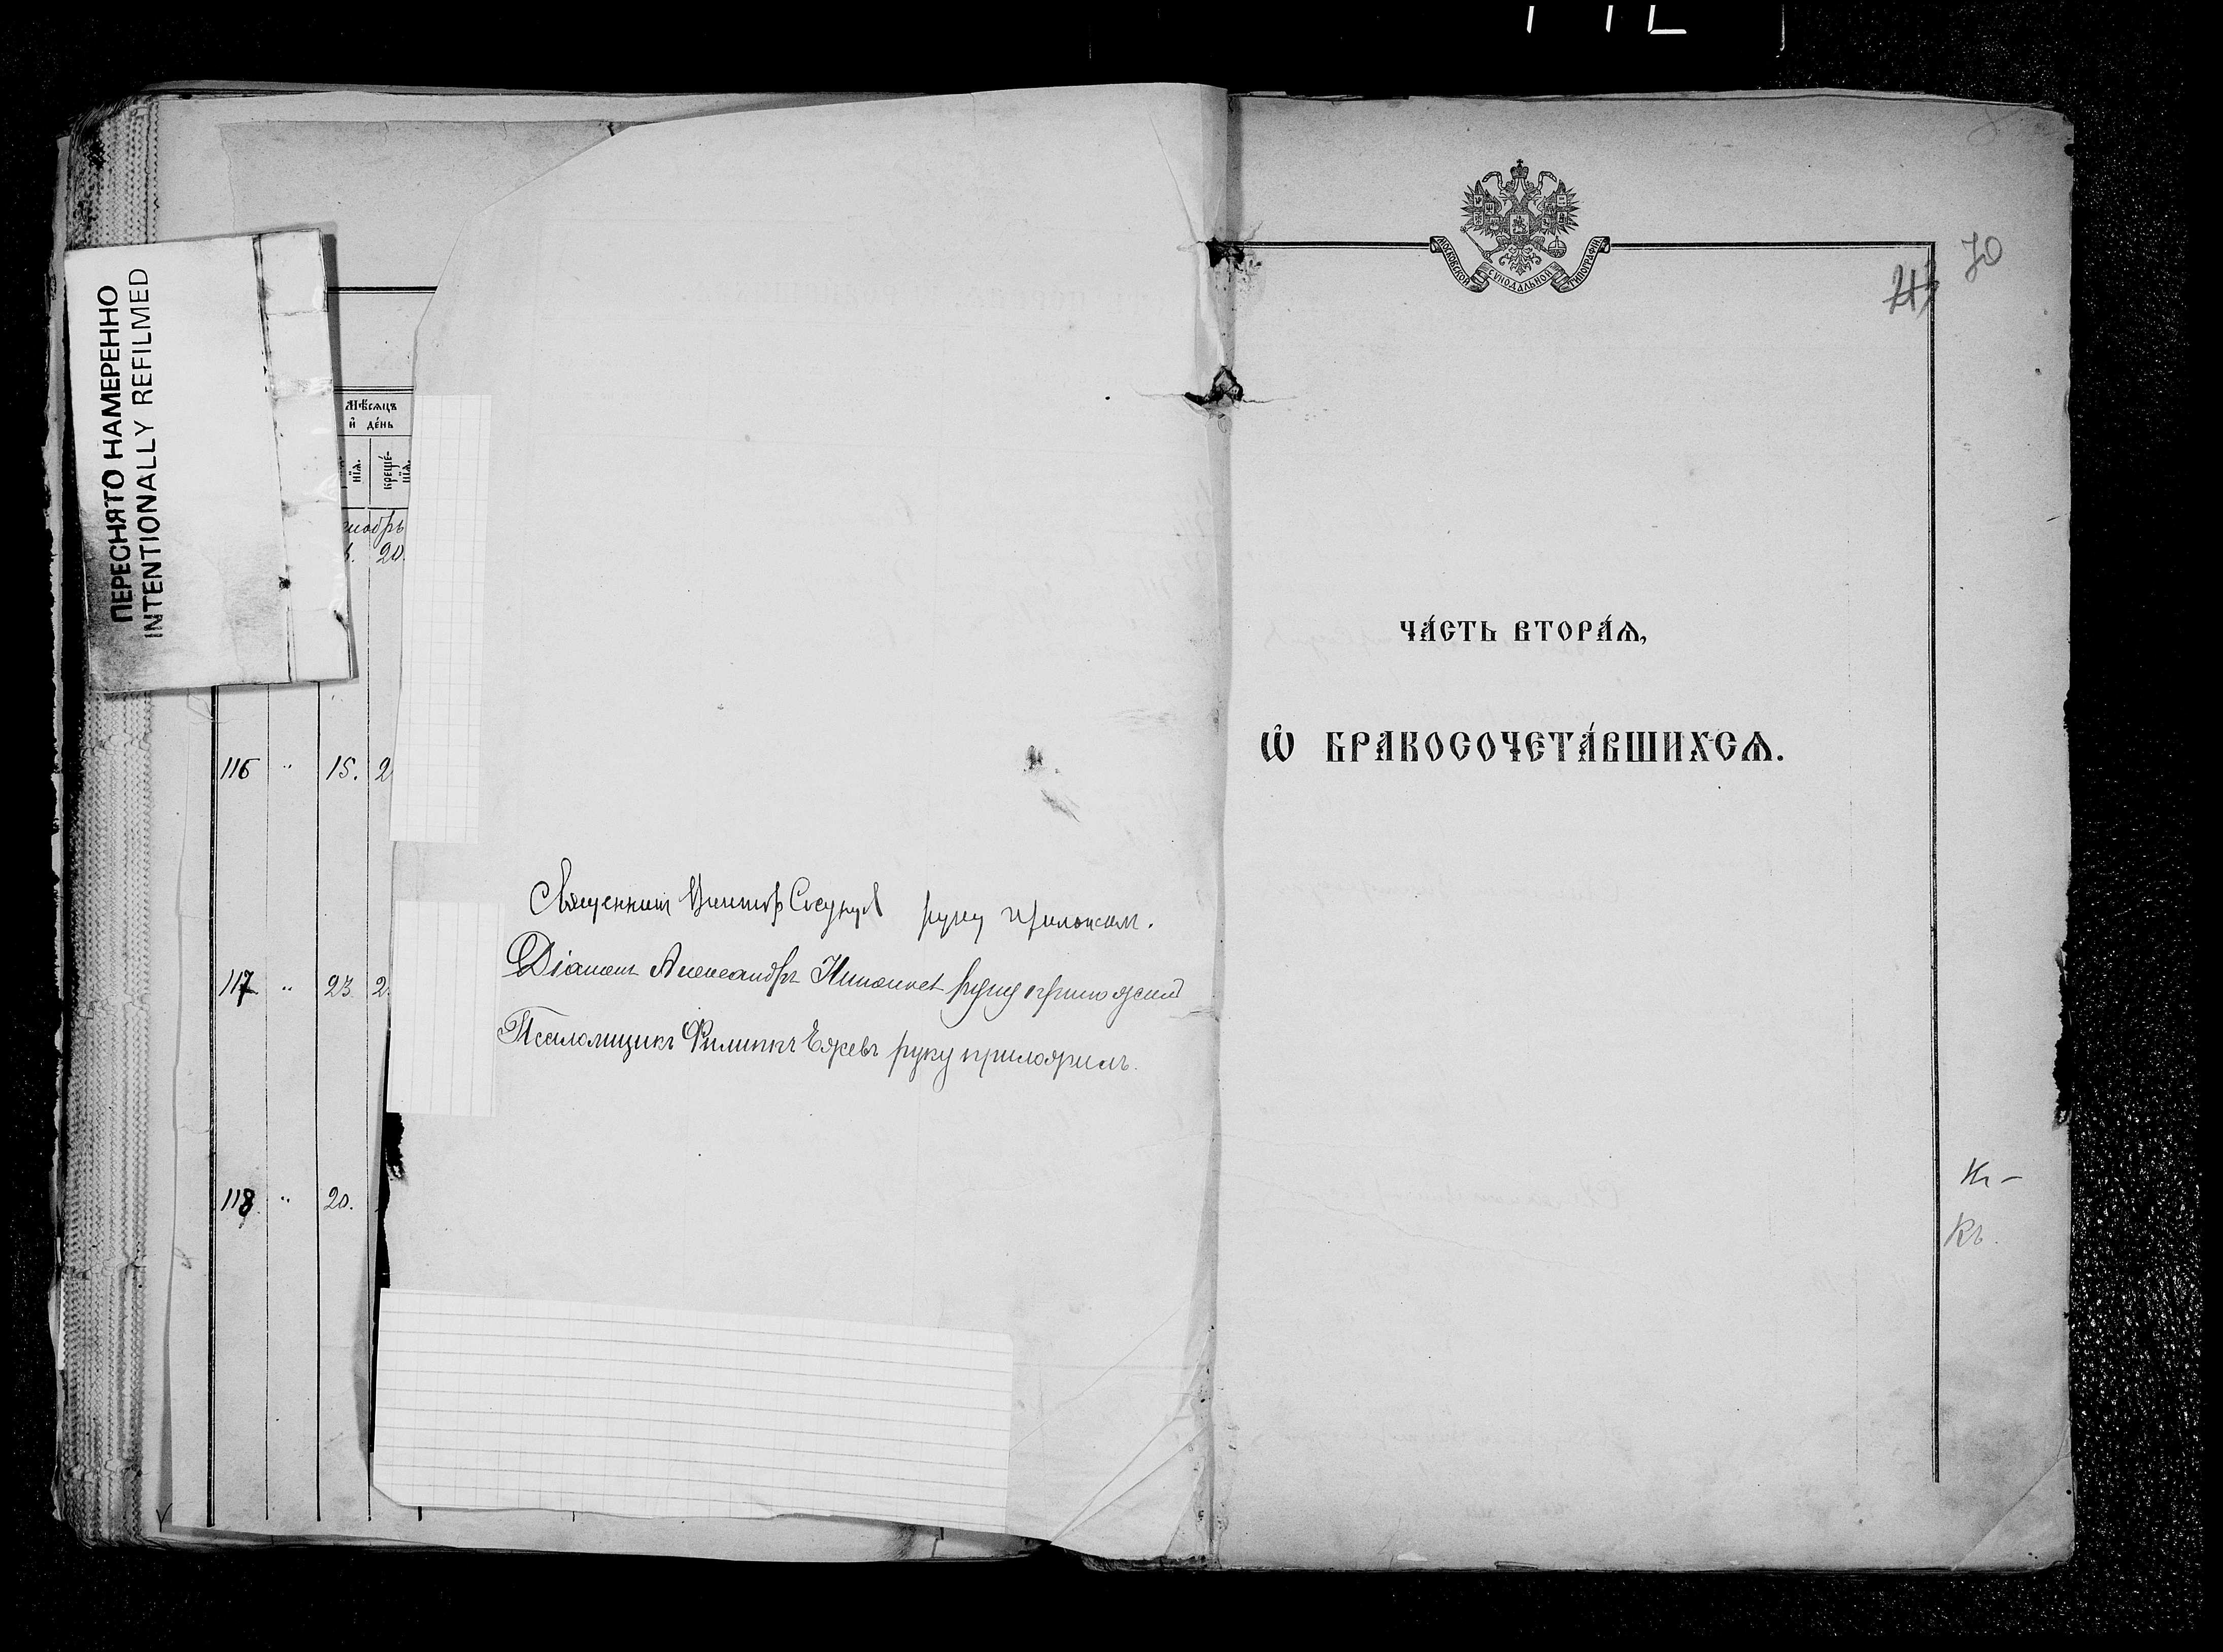 ПЕРЕСНЯТО НАМЕРЕННО
INTENTIONALLY REFILMED
Мѣ́сѧцъ
и҆ де́нь
нїѧ.
креще́-
нїѧ.
20.
116 " 15. 2
117 " 23 2
118 " 20.
Священникъ Викторъ руку приложилъ.
Діаконъ Александръ руку приложилъ
Псаломщикъ Филиппъ Ежевъ руку приложилъ.
МОСКОВСКОЙ СѴНОДАЛЬНОЙ ТИПОГРАФІИ
70
ЧА́СТЬ ВТОРА́Ѧ,
Ѡ҆ БРАКОСОЧЕТА́ВШИХСѦ.
Къ.